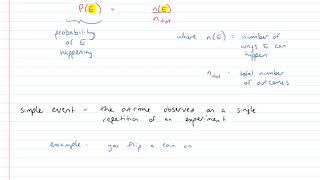 P(E) = n(E)
n tot
probability of E happening
where n(E) = number of ways E can happen
n tot = total number of outcomes
simple event - the outcome observed on a single
repetition of an experiment
example - you flip a coin an